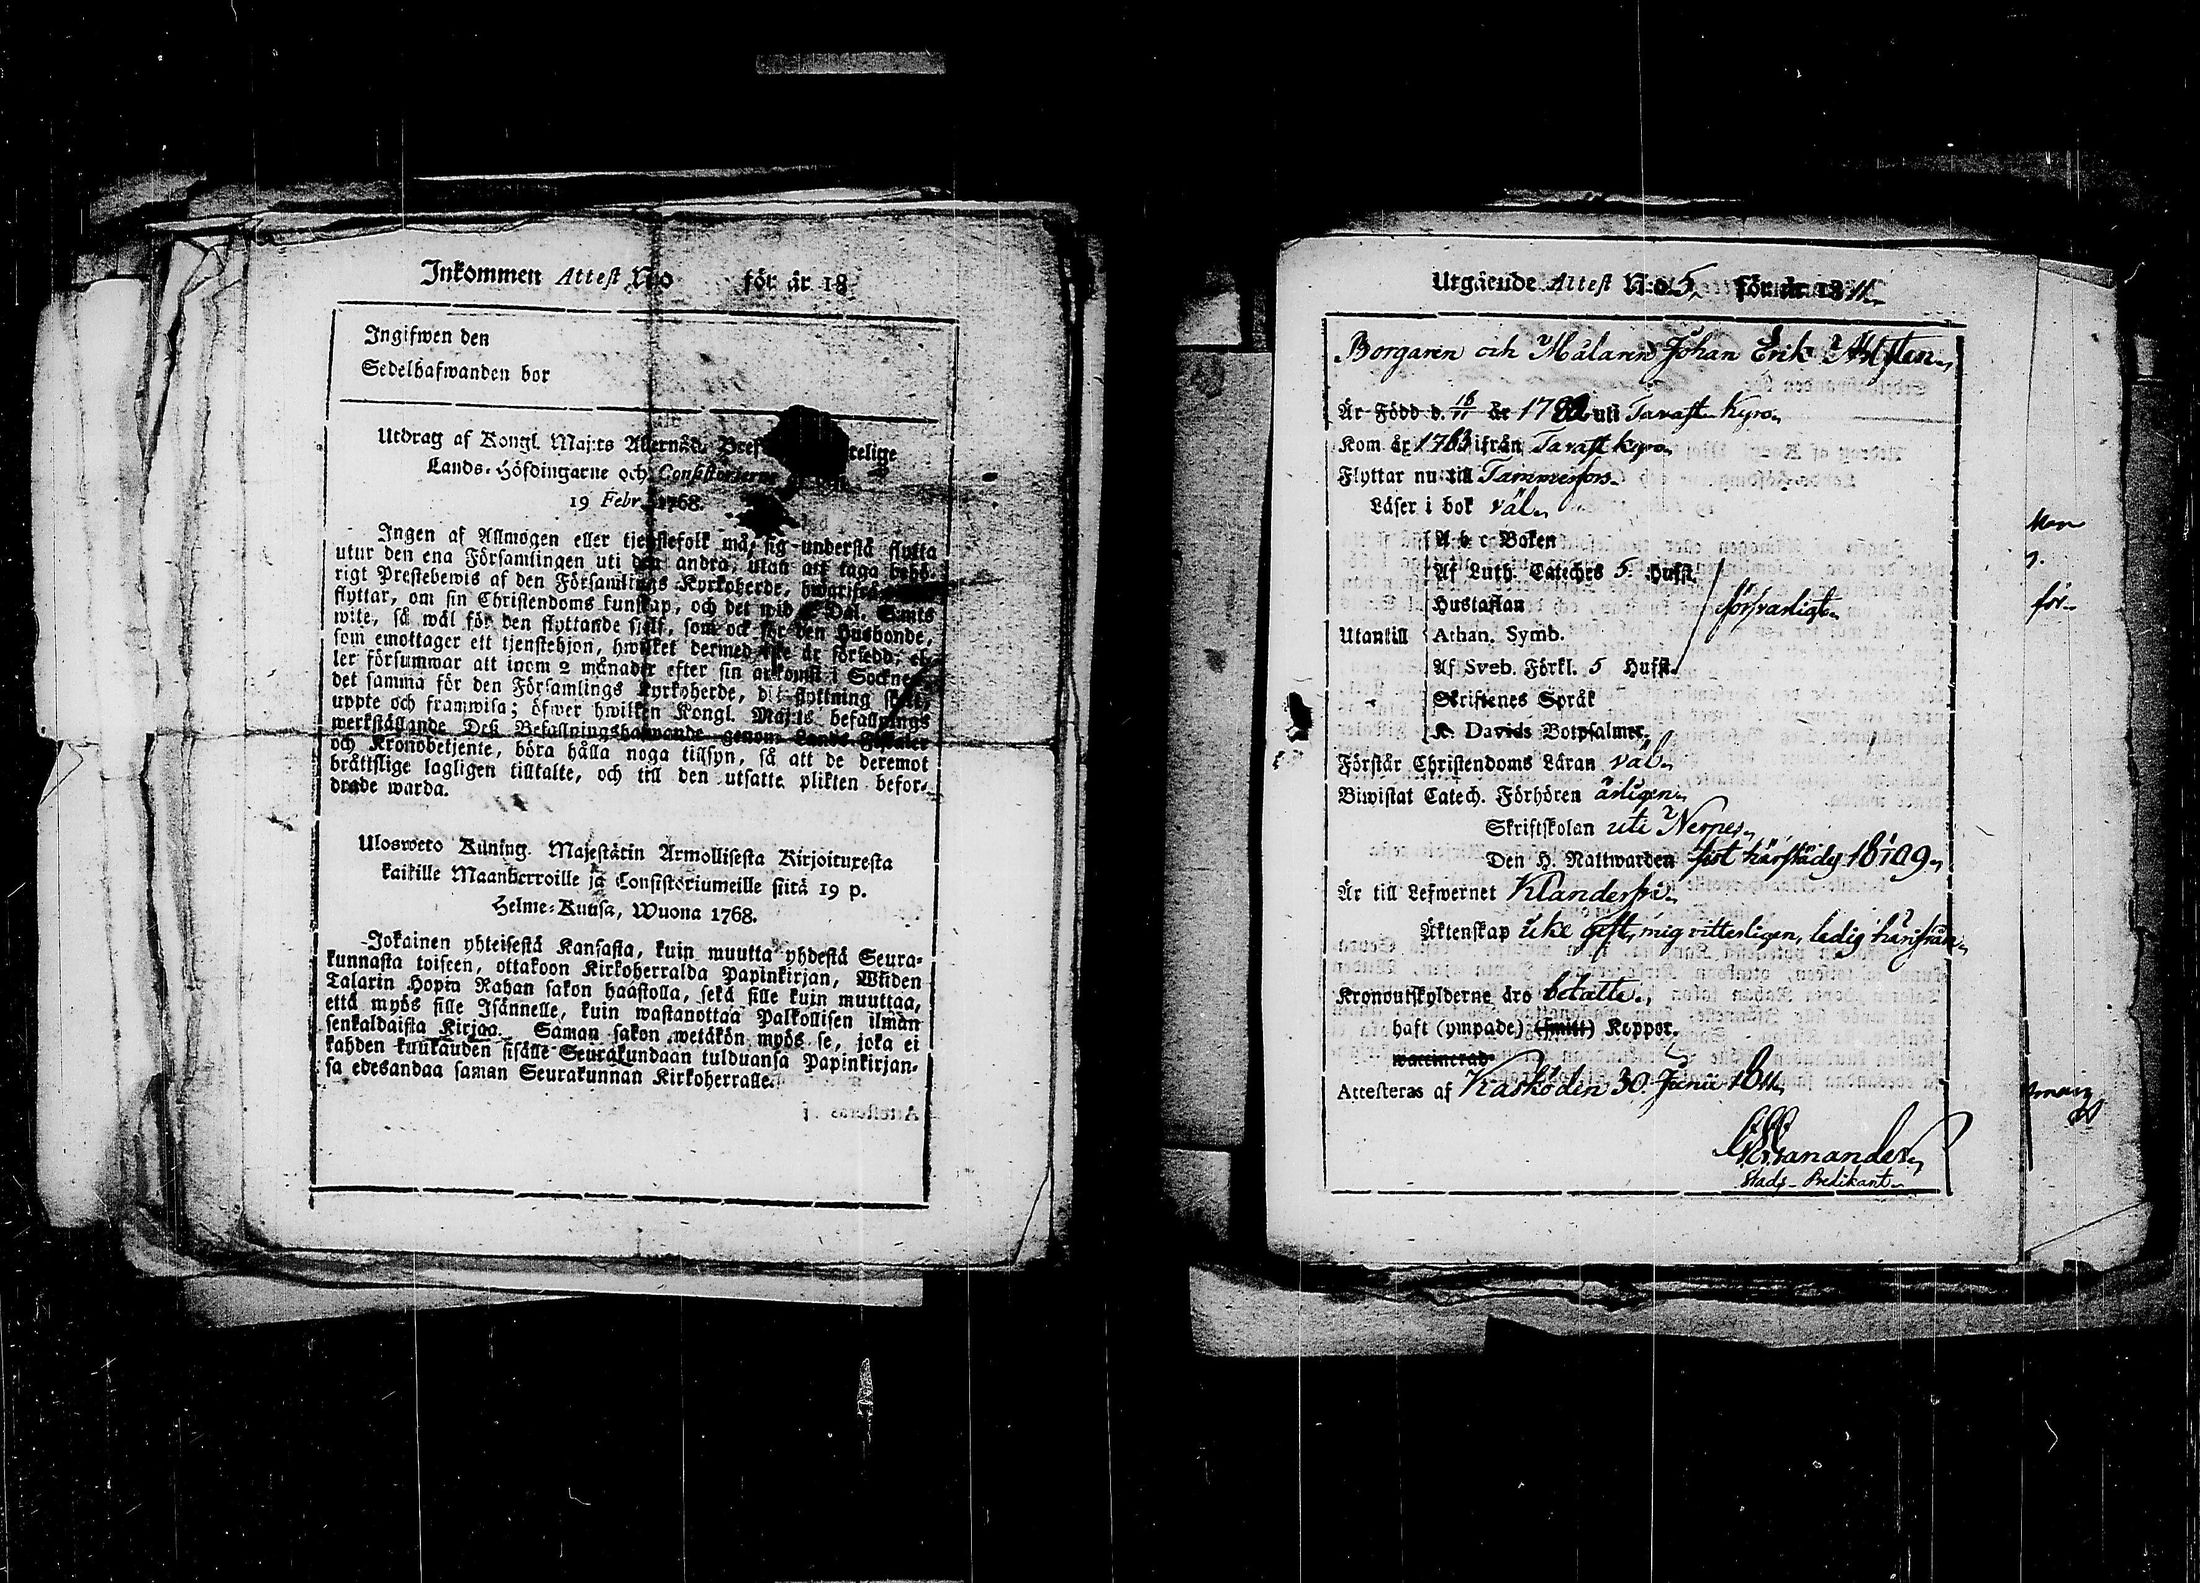 Inkommen Attest No för år 18
Ingifwen den
Sedelhafwanden bor
Utdrag af Kongl. Maj:ts Allernåd. Bref telige
Lands-Höfdingarne och Consistorierne
19 Febr. 1768.
Ingen af Allmogen eller tjenstefolk må sig understå flytta
utur den ena Församlingen uti den andra, utan att taga behö-
rigt Prestebewis af den Församlings Kyrkoherde, hwarifrå
flyttar, om sin Christendoms kunskap, och det wid Dal. S:mts
wite, så wäl för den flyttande sjelf, som ock för den Husbonde,
som emottager ett tjenstehjon, hwilket dermed icke är försedd; el-
ler försummar att inom 2 månader efter sin ankomst i Socknen
det samma för den Församlings Kyrkoherde, dit flyttning skett,
uppte och framwisa; öfwer hwilken Kongl. Maj:ts befallnings
werkställande Desz Befallningshafwande genom Lands Fiscaler
och Kronobetjente, böra hålla noga tillsyn, så att de deremot
bråttslige lagligen tilltalte, och till den utsatte plikten befor-
drade warda.
Uloswеto Kuning. Majestätin Armollisesta Kirjoituxesta
kaikille Maanherroille ja Consistoriumeille siitä 19 p.
Helme-Kuusa, Wuona 1768.
Jokainen yhteisestä Kansasta, kuin muutta yhdestä Seura-
kunnasta toiseen, ottakoon Kirkoherralda Papinkirjan, Wiiden
Talarin Hopia Rahan sakon haastolla, sekä sille kuin muuttaa,
että myös sille Isännelle, kuin wastanottaa Palkollisen ilman
senkaldaista Kirjaa. Saman sakon wetäkön myös se, joka ei
kahden kuukauden sisälle Seurakundaan tulduansa Papinkirjan-
sa edesandaa saman Seurakunnan Kirkoherralle.
Utgående Attest N:o 5. för år 1811.
Borgaren och Målaren Johan Erik
Är Född d. 16/11 år uti Tavast Kyro
Kom år 1763 ifrån Tavast kyro
Flyttar nu till Tammerfors.
Läser i bok väl.
A b c Boken
Af Luth. Cateches 5. Hufst.
Hustaflan försvarligt.
Utantill Athan. Symb.
Af Sveb. Förkl. 5 Hufst.
Skriftenes Språk
K. Davids Botpsalmer.
Förstår Christendoms Läran väl.
Biwistat Catech. Förhören årligen.
Skriftskolan uti Nerpes.
Den H. Nattwarden sist härstädes
Är till Lefwernet Klanderfri.
Äktenskap icke gift, mig vitterligen, ledig härifrån.
Kronoutskylderne äro betalte.
haft (ympade) (smitt) Koppor.
waccinerad
Attesteras af Kaskö den 30. Junii 1811.
Stads-Predikant.
för